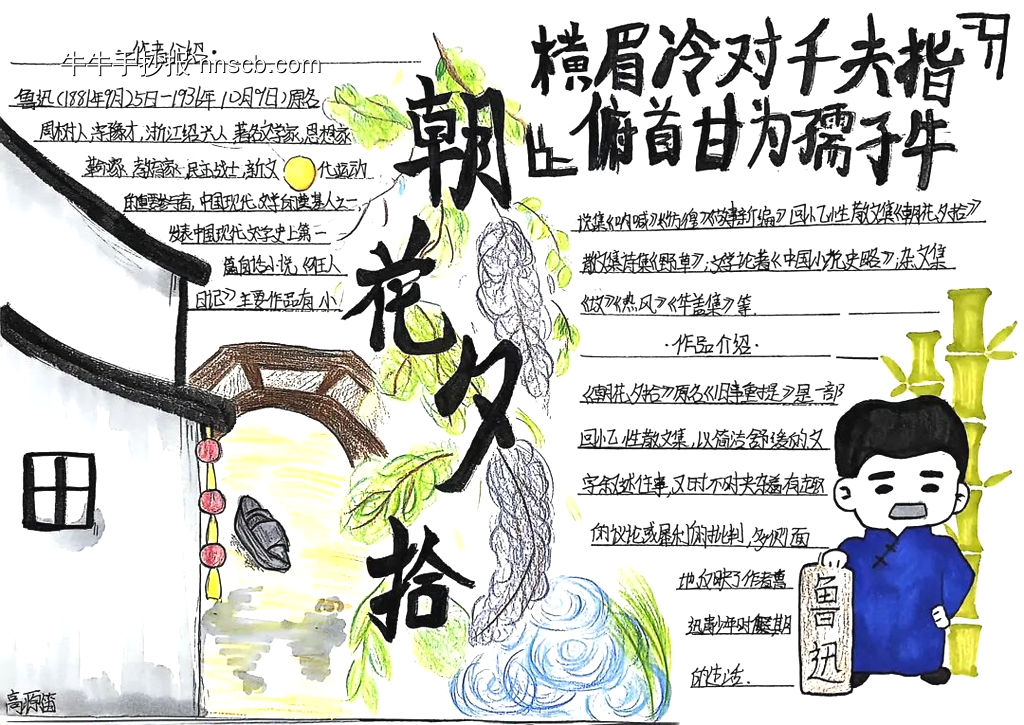 横眉冷对千夫指
俯首甘为孺子牛
朝花夕拾
·作者介绍·
牛牛手抄报-nnscb.com
鲁迅(1881年9月25日-1936年10月9日)原名
周树人,字豫才,浙江绍兴人 著名文学家、思想家
革命家、教育家、民主战士,新文化运动
的重要参与者,中国现代文学的奠基人之一,
发表中国现代文学史上第一
篇白话小说《狂人
日记》主要作品有,小
说集《呐喊》《彷徨》《故事新编》回忆性散文集《朝花夕拾》
散文集诗集《野草》;文学论著《中国小说史略》;杂文集
《坟》《热风》《华盖集》等.
·作品介绍·
《朝花夕拾》原名《旧事重提》是一部
回忆性散文集,以简洁舒缓的文
字叙述往事,又时不时夹杂着有趣
的议论或犀利的批判,多侧面
地反映了作者鲁
迅青少年时
的生活.
鲁迅
高源笛